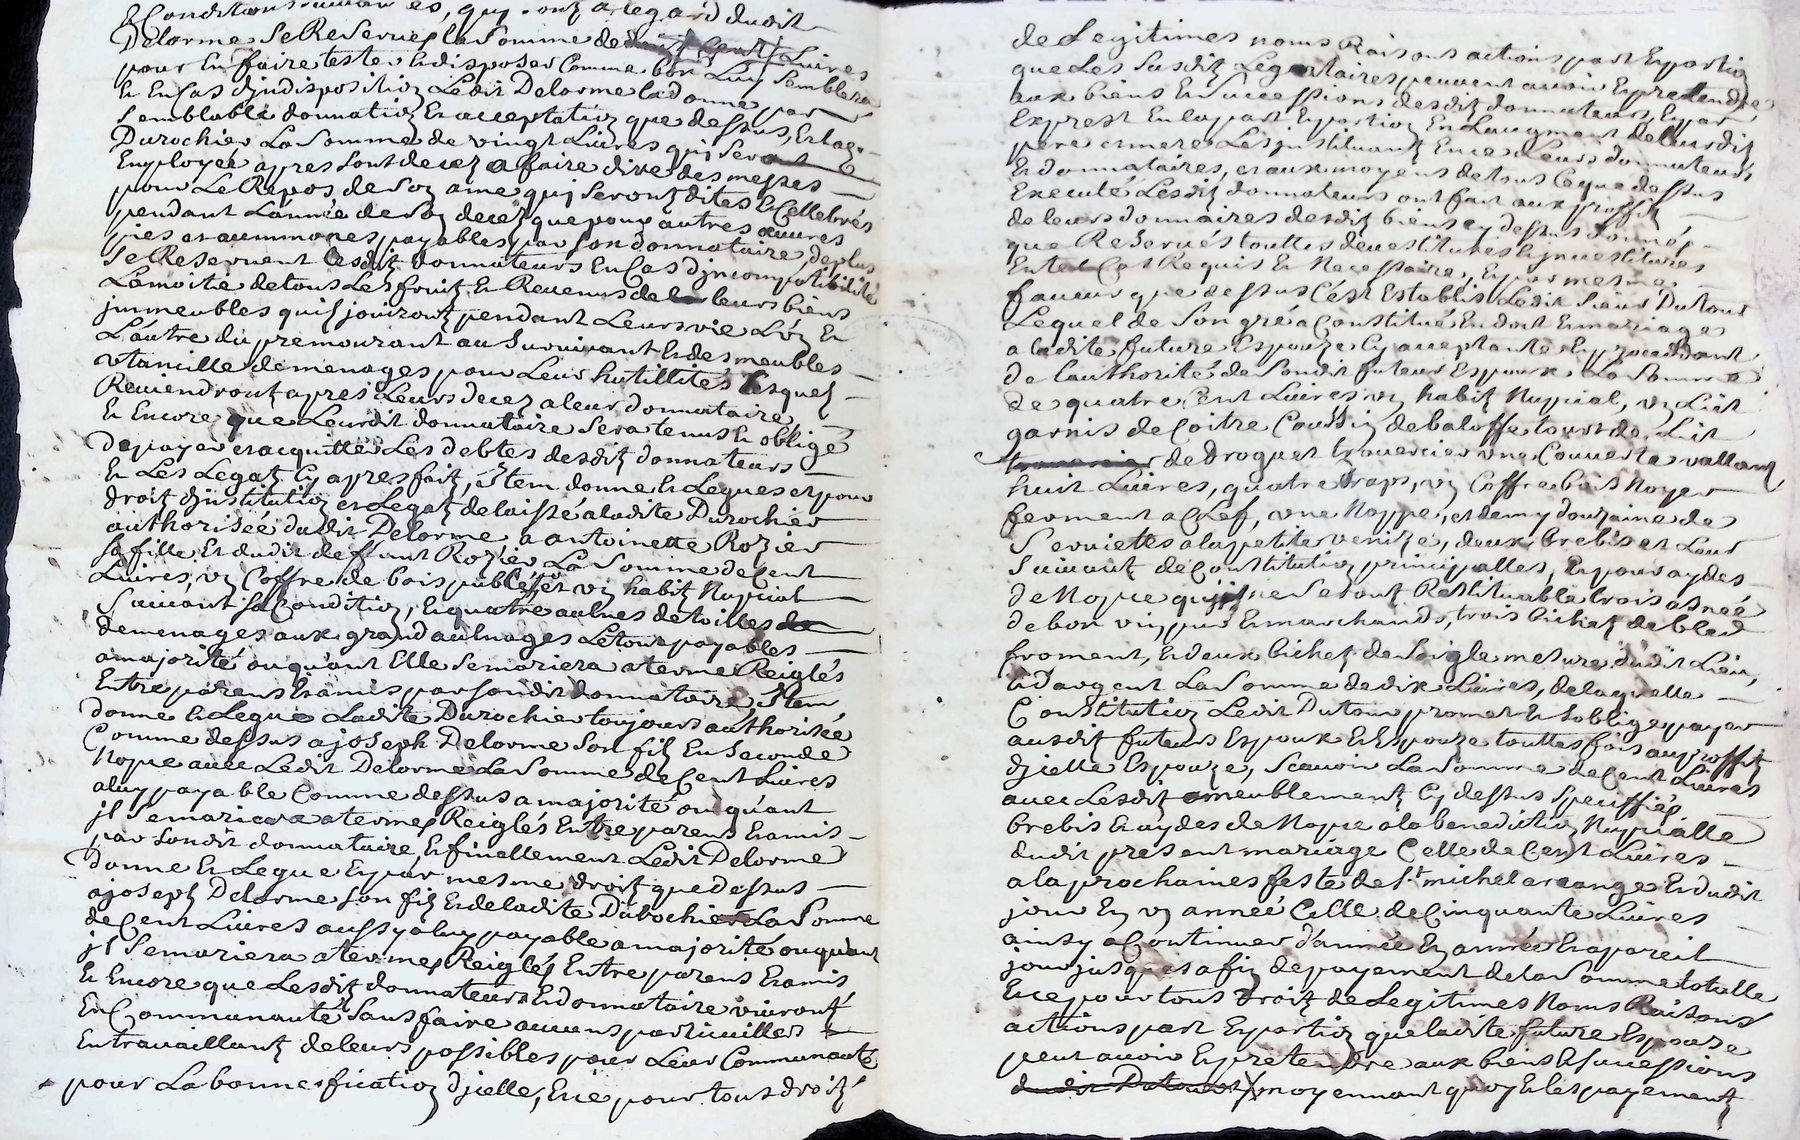 & Conditions suivantes, quy sont a legard dudit
Delorme Se Reserver la Somme de Livres
pour En faire tester & disposer Comme bon Luy Semblera
& En Cas djndispositioz Ledit Delorme la donne par
Semblable donnatioz Et acceptatioz que dessus, Et lad.
Durochier La Somme de vingt Livres quj Seront
Employeé apres Sont decez a faire dire des messes
pour Le Repos de Soz ame quj Seront dites & Cellebrés
pendant Lánnée de Soz decez que pour autres œuvres
pies et aummones payables par son donnataire, de plus
Se Reservent lesditz donnateurs En Cas djncompatibilité
Lamoitié detous Les fruitz & Revenus de leurs biens
jmmeubles quil jouiront pendant Leurs vie Lúz &
Láutre du premourant au Survivant & des meubles
utancille de menages pour Leur hutillités Lesquelz
Reviendront apres Leurs decez a leur donnataire
& Encore que Leurdit donnataire Sera tenus & obligé
de payer et acquitté Les debtes desditz donnateurs
& Les Legatz Cy apres faitz, Item donne & Legues et pour
droit djnstitutioz et Legat delaissé a ladite Durochier
authorisée dudit Delorme a antoinette Rozier
sa fille Et dudit deffunt Rozier La Somme de Cent
Livres, vz Coffre de bois et vz habit Nupcial
Suivant sa Conditioz, & quatre aulnes de toilles
de menages aux grand aulnages Letout payables
a majorité ou qúant Elle Semariera a terme Reiglés
Entre parens & amis par Sondit donnataire, Item
donne & Legue Ladite Durochier toujours authorisée
Comme dessus a joseph Delorme Son filz En Seconde
Nopce avec Ledit Delorme La Somme de Cent Livres
aluy payable Comme dessus a majorité ou qúant
jl Semariera a termes Reiglés Entre parens & amis
par Sondit donnataire, & finallement Ledit Delorme
donne & Legue Et par mesme droit que Dessus
a joseph Delorme Son filz & de ladite Durochier La Somme
de Cent Livres aussy a luy payable a majorité ou qúant
jl Semariera a termes Reiglés Entre parens & amis
& Encore que Lesditz donnateurs & donnataire vivront
En Communauté Sans faire aucuns particuilles
En travaillant de leurs possibles pour Leur Communauté
pour La bonnesficatioz djcelle, & ce pour tous droitz
de Legitimes noms Raisons actions part & portioz
que Les Susditz Legataires peuvent avoir & pretendre
aux biens & Successions desditz donnateurs, & par
Exprest En la part & portioz En Laugment de leurdit
pere et mere Les jnstituant En ce Leurs donnateurs
& donnataires, et aux moyens de tous Ce que dessus
Executé Lesditz donnateurs ont fait aux proffit
de leurs donnaires desditz biens cy dessus donnés
que Reservés touttes devestitures & jnvestitures
En tel Cas Requis & Necessaire, Et par mesme
faveur que dessus Cést Establis Ledit Sieur Dutour
Lequel de Son gré a Constitué En dot & mariage
a ladite future Espouze Cy acceptante & procedant
de lauthorité de Sondit futeur Espoux La Somme
de quatre Cent Livres vz habit Nupcial, vz Lict
garnis de Coitre Coussiz de baloffe tour de Lit
de Droguet traversier une Couverte vallant
huit Livres, quatre draps, vz Coffre bois Noyer
ferment a Clef, une Nappe, et demy douzaine de
Serviettes a la petite venize, deux brebis et Leur
Suivant de Constitutioz principalles, & pour aydes
de Nopce quj ne Seront Restituable trois asneé
de bon viz pur & marchands, trois bichetz de bled
froment, & deux bichetz de Soigle mesure dudit Lieu,
& Dargent La Somme de dix Livres, de laquelle
Constitutioz Ledit Dutour promet & Soblige payer
ausditz futeurs Espoux & Espouze touttes fois au proffitz
djcelle Espouze, Scavoir La Somme de Cent Livres
avec Lesditz ameublementz Cy dessus Speciffiés
brebis & aydes de Nopce a la benedictioz Nupcialle
dudit present mariage Celle de Cent Livres
a la prochaines feste de St michel arcange & Dudit
jour En vz anneé Celle de Cinquante Livres
ainsy a Continuer d'année En année & a pareil
jour jusques a fiz de payement de la Somme totalle
& ce pour tous droitz de Legitimes Noms Raisons
actions part & portioz que ladite future Espouze
peut avoir & pretendre aux biens & Successions
dudit Dutour moyennant quoy & les payementz